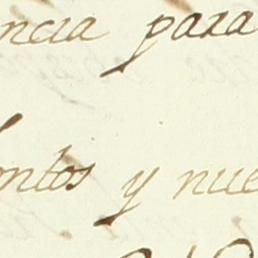 ncia para
ontos y nue